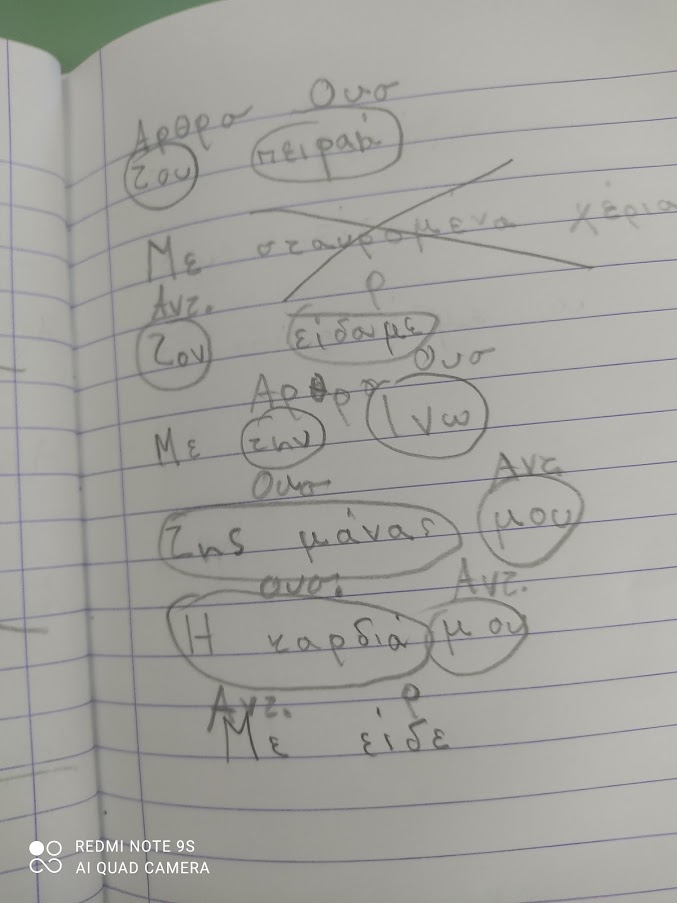 Αρθρο Ουσ
Του πειρατή
Με σταυρομενα χέρια
Αντ. Ρ
Τον είδαμε
Αρθρο Ουσ
Με την Ινω
Ουσ Αντ.
Της μάνας μου
ουσ. Αντ.
Η καρδιά μου
Αντ. Ρ
Με είδε
REDMI NOTE 9S
AI QUAD CAMERA